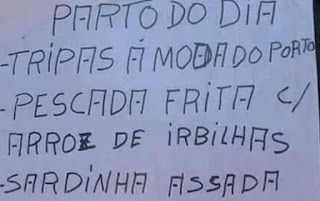 PARTO DO DIA
-TRIPAS Á MODA DO PORTO
-PESCADA FRITA C/
ARROZ DE IRBILHAS
-SARDINHA ASSADA